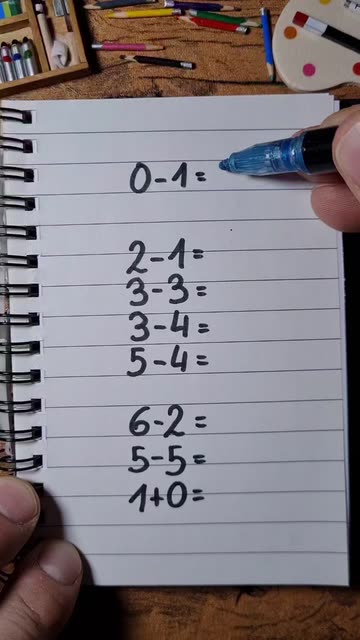 0-1=
2-1=
3-3=
3-4=
5-4=
6-2=
5-5=
1+0=